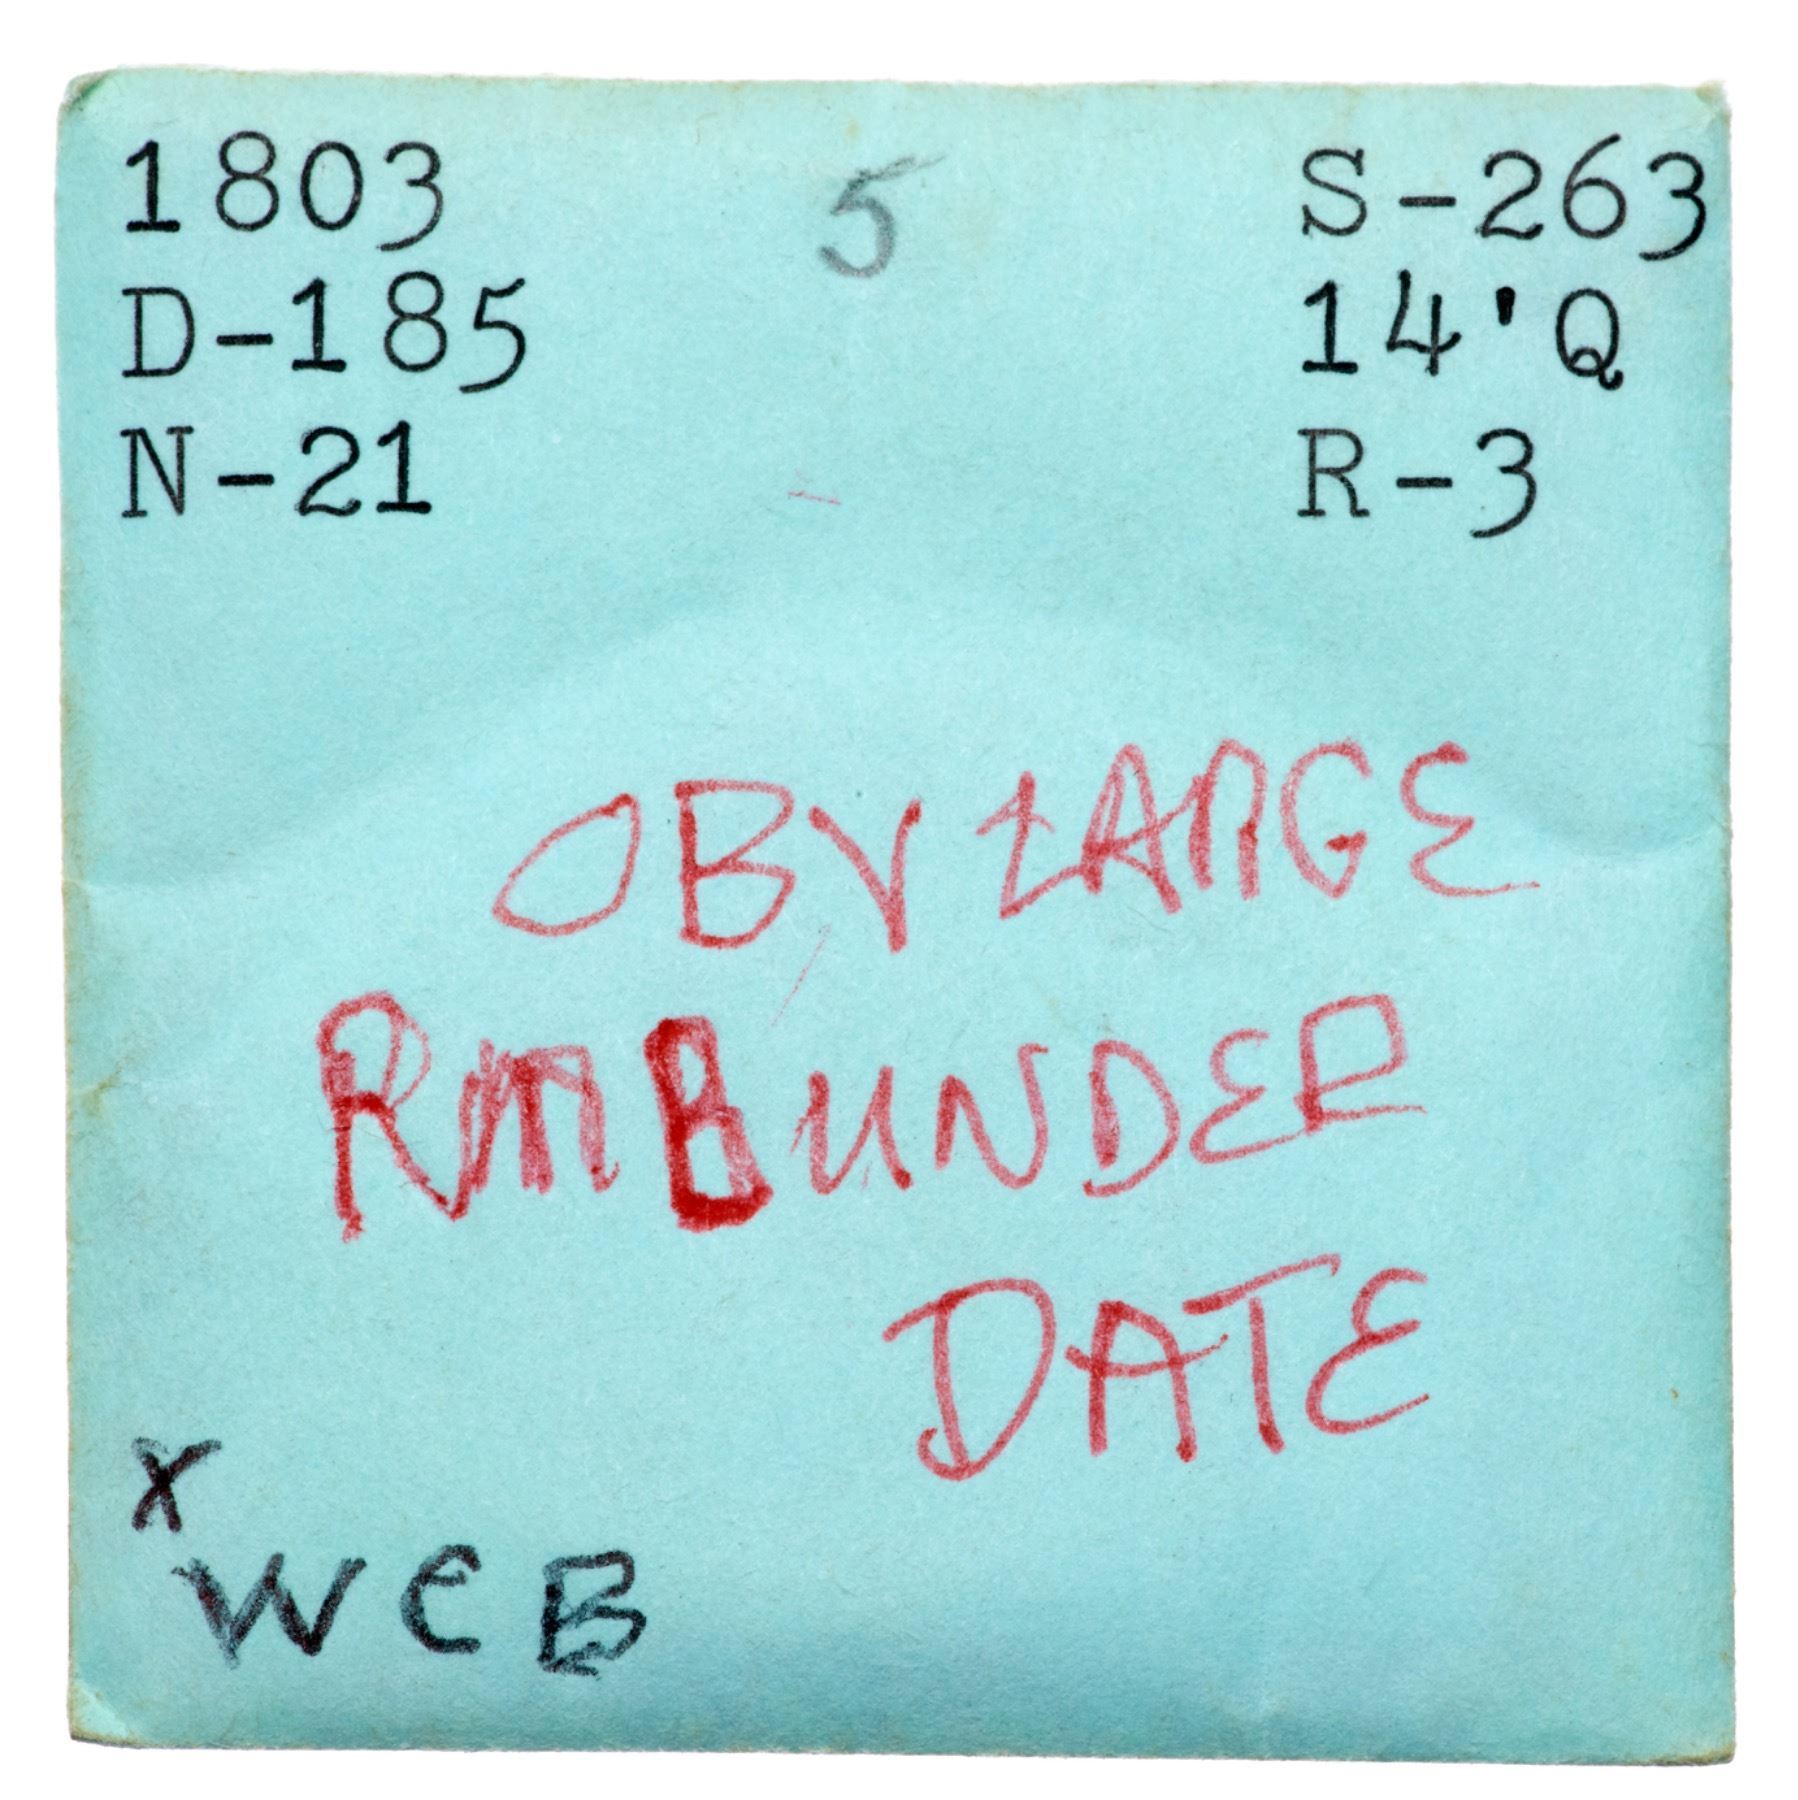 1803 5 S-263
D-185 14'Q
N-21 R-3
OBV LARGE
RMB UNDER
DATE
X
WCB